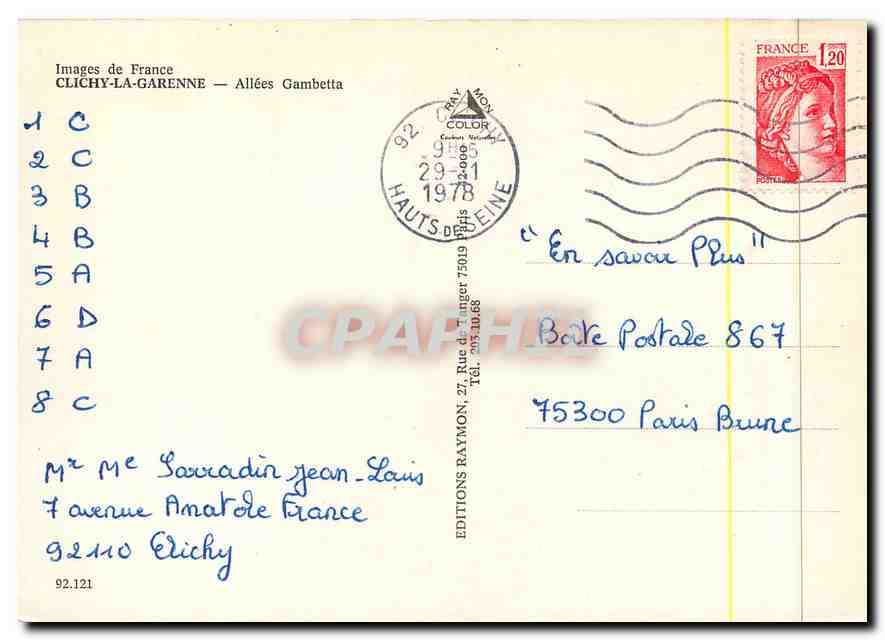 Images de France
CLICHY-LA-GARENNE — Allées Gambetta
1 C
2 C
3 B
4 B
5 A
6 D
7 A
8 C
Mr Me Sarradin Jean-Louis
7 avenue Anatole France
92110 Clichy
92.121
RAY MON
COLOR
92. CLICHY
29-11
1978
HAUTS DE SEINE
EDITIONS RAYMON, 27, Rue de Tanger 75019 Paris
Tél. 203.10.68
FRANCE 1,20
POSTES
"En savoir Plus"
Boîte Postale 867
75300 Paris Brune
CPAPHIL